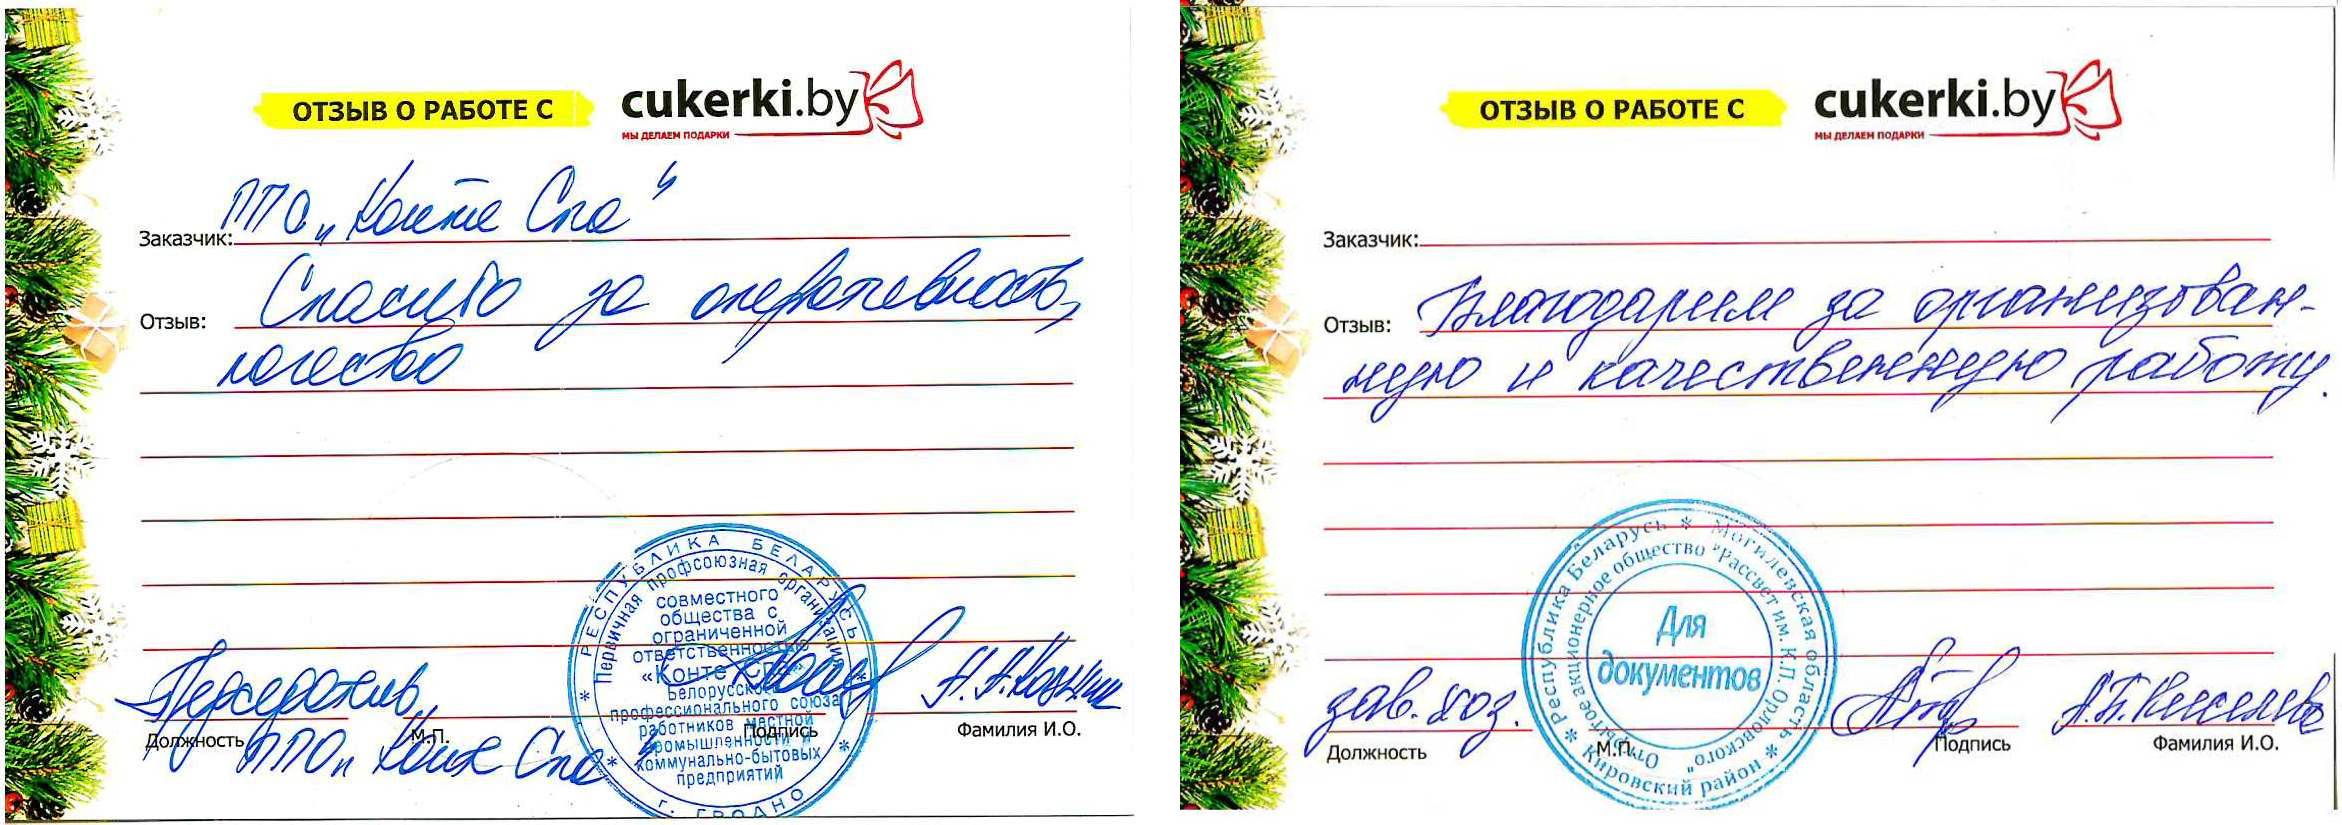 ОТЗЫВ О РАБОТЕ С
cukerki.by
МЫ ДЕЛАЕМ ПОДАРКИ
Заказчик: ППО „Конте Спа"
Отзыв: Спасибо за оперативность,
качество
Должность
М.П.
Подпись
Фамилия И.О.
ППО „Конте Спа"
РЕСПУБЛИКА БЕЛАРУСЬ
Первичная профсоюзная организация
совместного
общества с
ограниченной
ответственностью
«Конте Спа»
Белорусского
профессионального союза
работников местной
промышленности и
коммунально-бытовых
предприятий
г. ГРОДНО
ОТЗЫВ О РАБОТЕ С
cukerki.by
МЫ ДЕЛАЕМ ПОДАРКИ
Заказчик:
Отзыв: Благодарим за организован-
ную и качественную работу.
зав. хоз.
А.Б. Киселева
Должность
М.П.
Подпись
Фамилия И.О.
Республика Беларусь * Могилевская область * Кировский район *
Открытое акционерное общество "Рассвет им. К.П. Орловского"
Для
документов